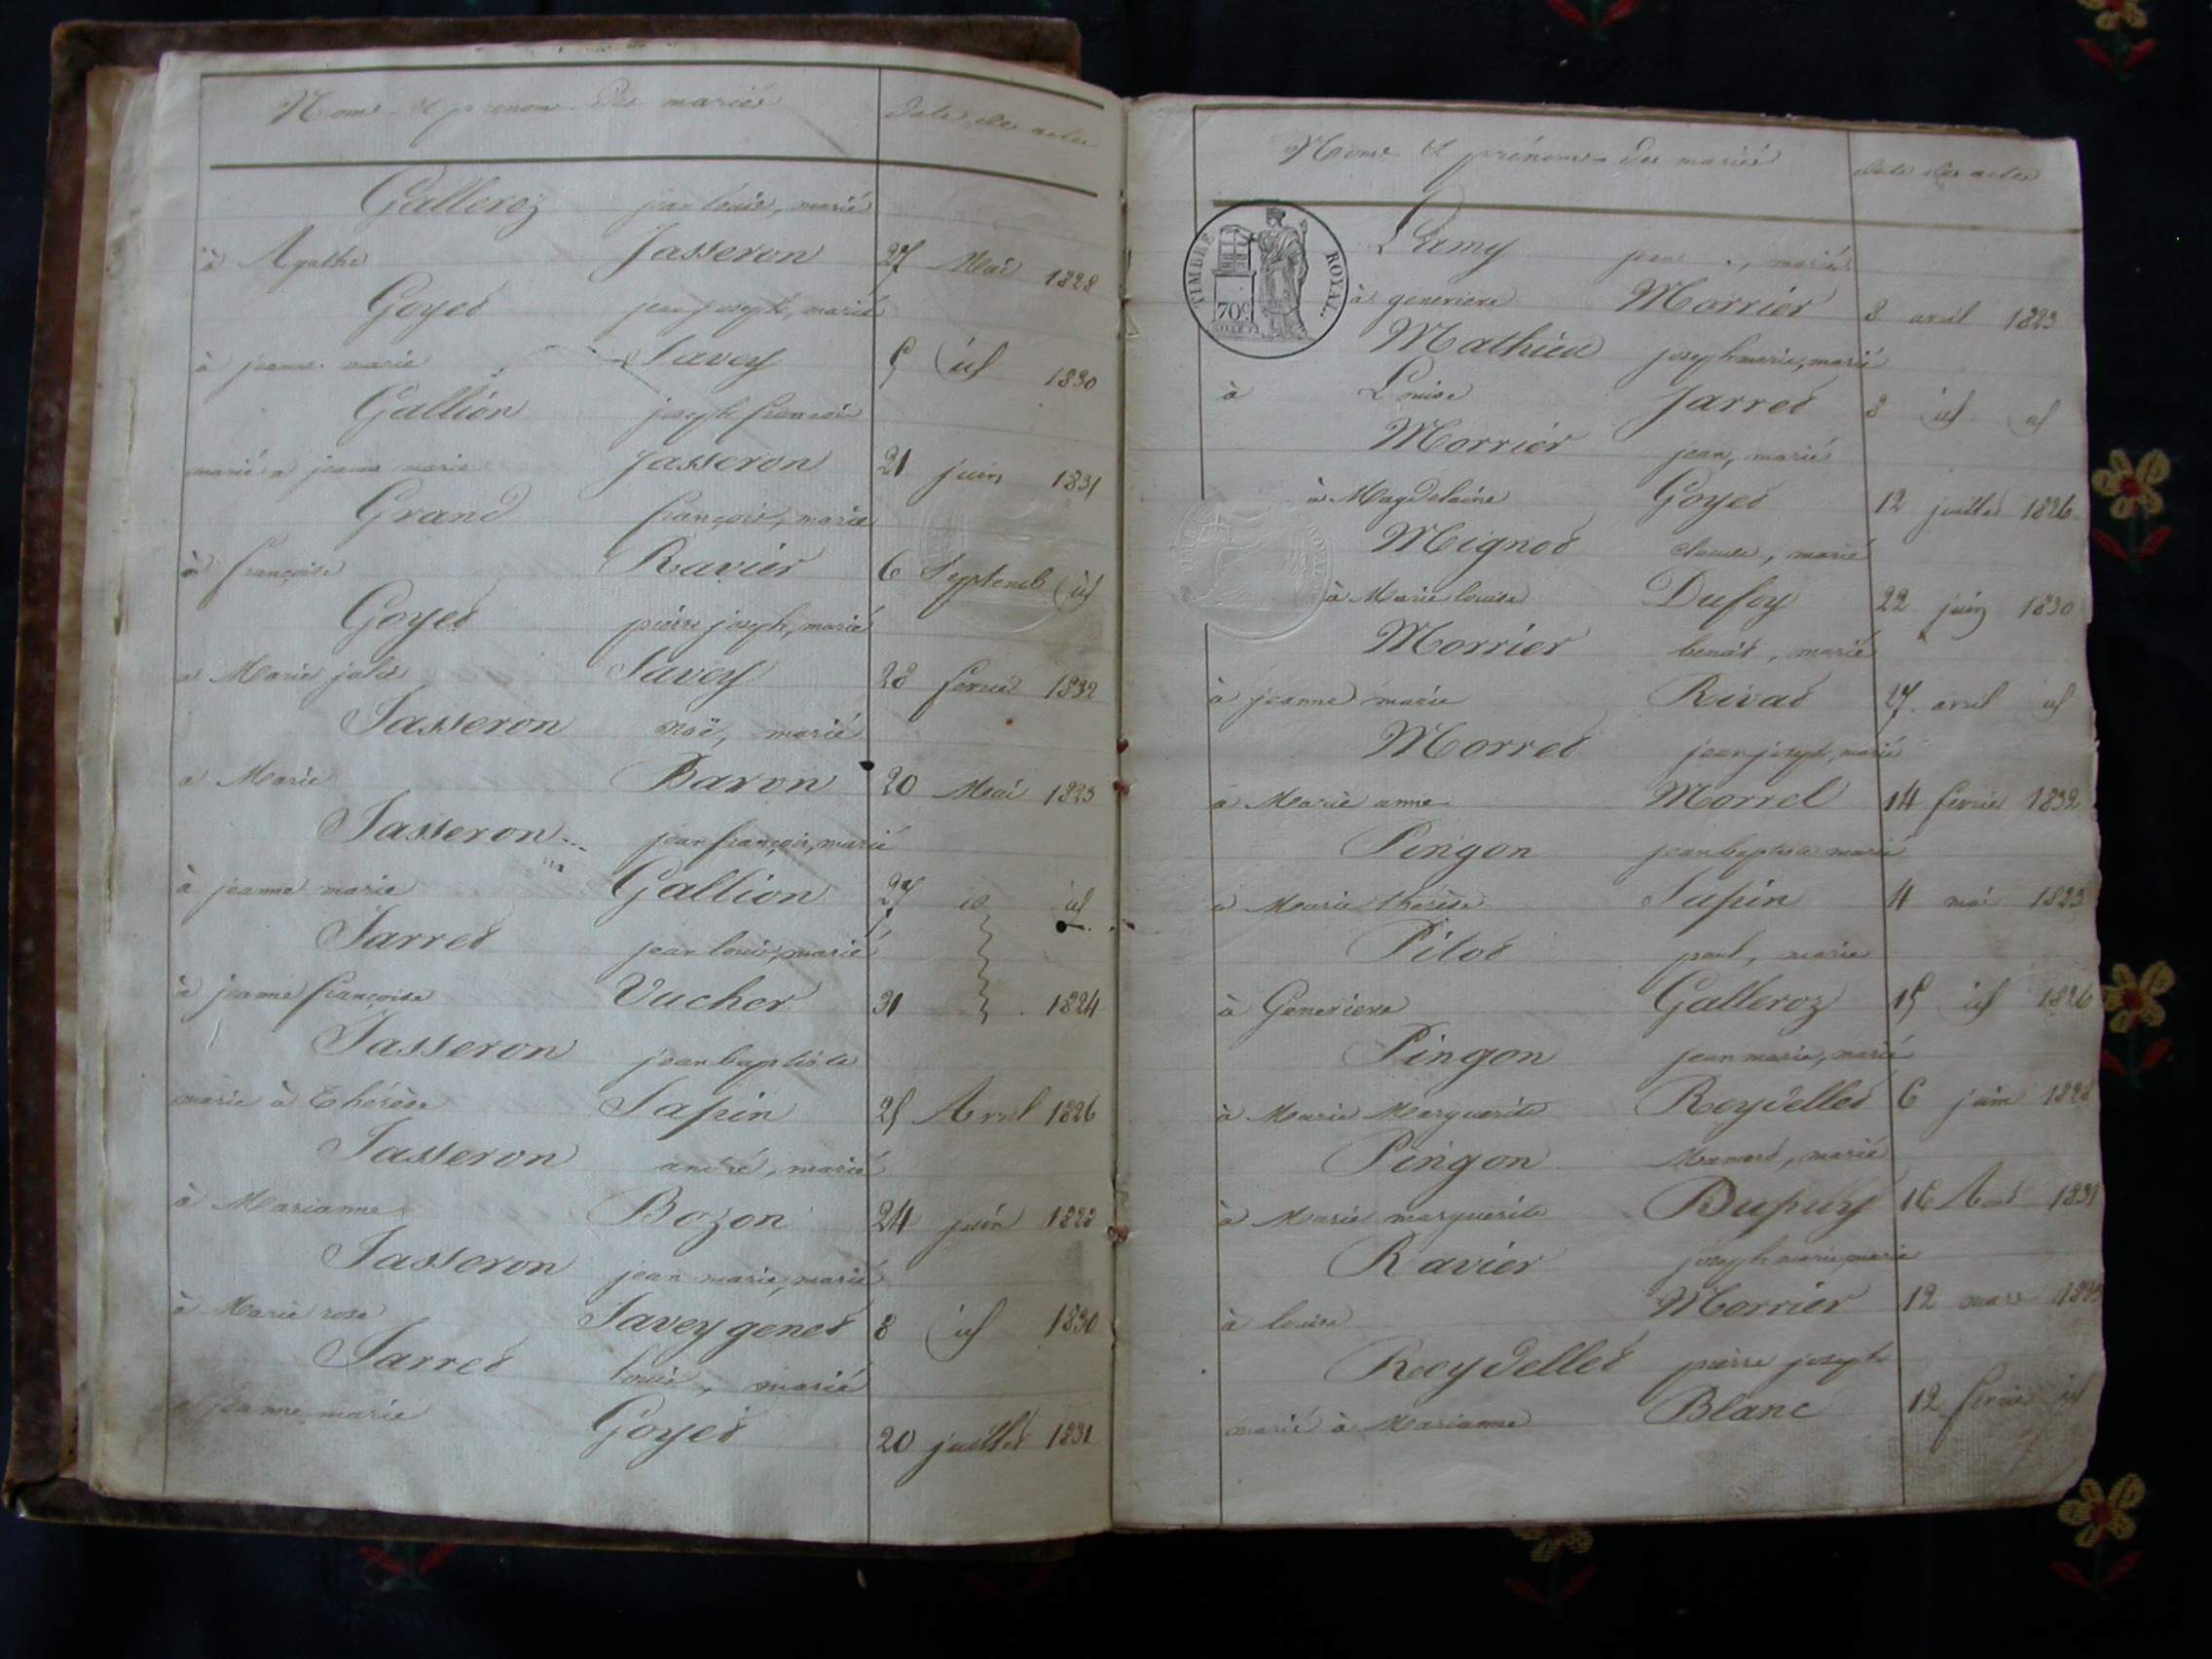 Noms et prenoms des mariés date des actes
Galleroz jean louis, marié
à Agathe Jasseron 27 Mai 1828
Goyet jean joseph, marié
à jeanne marie Savey 5 id 1830
Gallion joseph françois
marié a jeanne marie Jasseron 21 juin 1831
Grand françois, marié
à françoise Ravier 6 Septemb id
Goyet pierre joseph, marié
a Marie julie Savey 28 fevrier 1832
Jasseron marié
a Marie Baron 20 Mai 1823
Jasseron jean françois, marié
à jeanne marie Gallion 27 id id
Jarret jean louis, marié
à jeanne françoise Vucher 31 1824
Jasseron jean baptiste
marié à Thérèse Sapin 25 Avril 1826
Jasseron andré, marié
à Marianne Bozon 24 juin
Jasseron jean marie, marié
à Marie rose Savey genet 8 id 1830
Jarret louis, marié
a jeanne marie Goyet 20 juillet 1831
Noms et prénoms des mariés date des actes
TIMBRE ROYAL.
70c
Lamy jean, marié
à genevieve Morrier 3 avril 1823
Mathieu joseph marie, marié
à Louise Jarret 3 id id
Morrier jean, marié
à Magdelaine Goyet 12 juillet 1826
Mignot claude, marié
à Marie louise Dufoy 22 juin 1830
Morrier benoit, marié
à jeanne marie Rivat 27 avril id
Morret jean joseph, marié
a Marie anne Morrel 14 fevrier 1832
Pingon jean baptiste marié
a Marie thérèse Sapin 4 mai 1823
Pilot paul, marié
à Genevieve Galleroz 15 id 1826
Pingon jean marie, marié
à Marie Marguerite Reydellet 6 juin 1828
Pingon marié
à Marie marguerite Dupuy 16 Aout 1831
Ravier joseph marie marié
à louise Morrier 12 mars
Reydellet pierre joseph
marié à Marianne Blanc 12 fevrier id